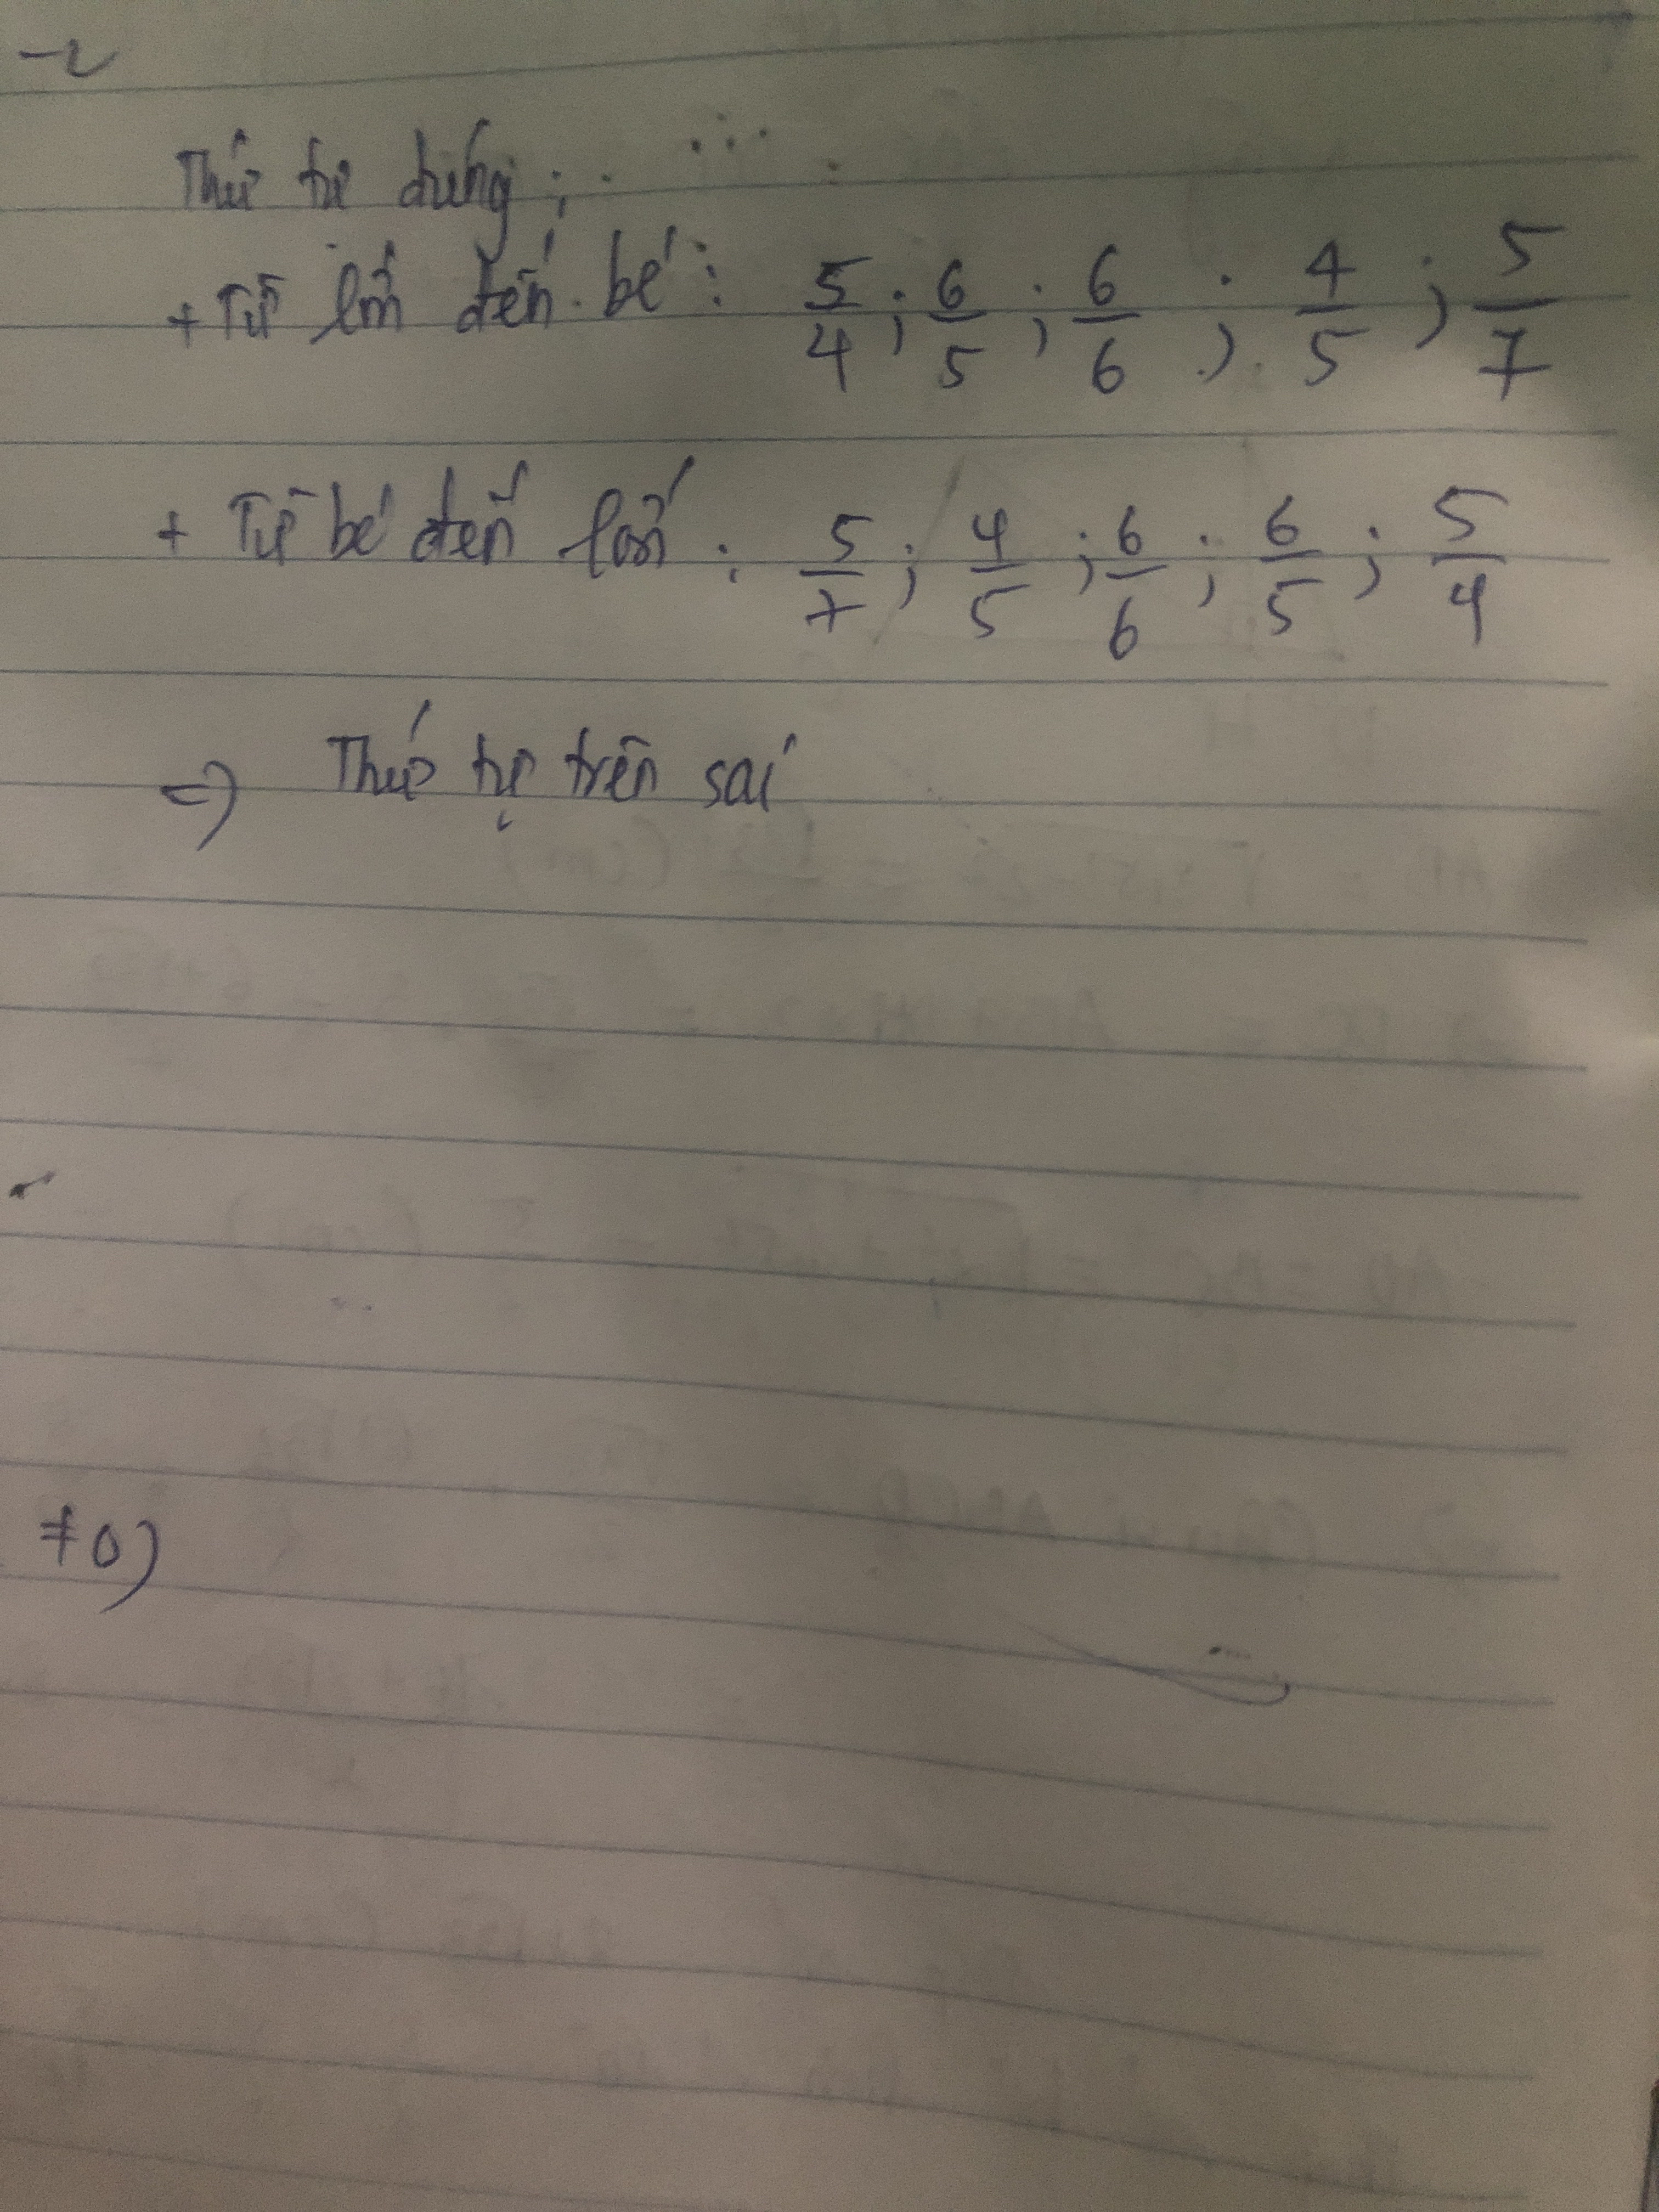 Thứ tự đúng :
+ Từ lớn đến bé : 5/4 ; 6/5 ; 6/6 ; 4/5 ; 5/7
+ Từ bé đến lớn : 5/7 ; 4/5 ; 6/6 ; 6/5 ; 5/4
=> Thứ tự trên sai
≠0)